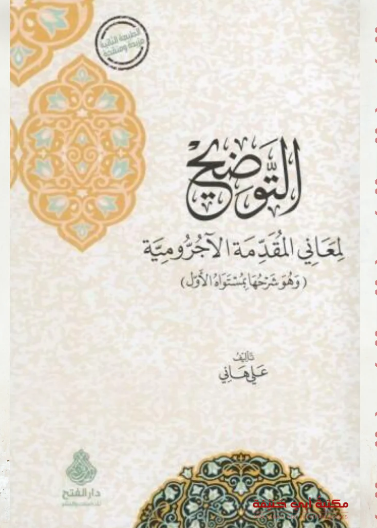 الطبعة الثانية
مزيدة ومنقحة
التَّوضيح
لِمَعَاني المُقَدِّمَة الآجُرُّومِيَّة
(وَهُوَ شَرْحُهَا بِمُسْتَوَاهُ الأَوَّل)
تَأليفُ
عَلي هَاني
دار الفتح
للدراسات والنشر